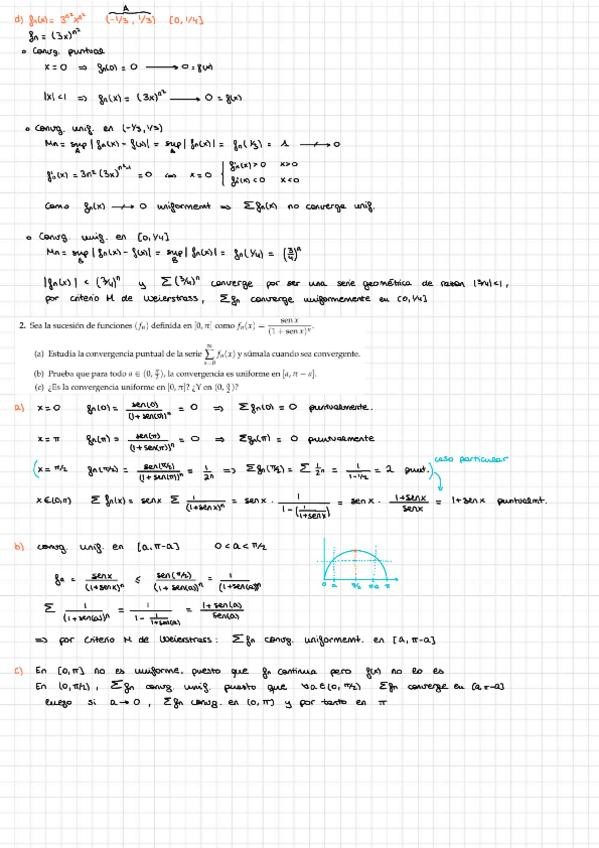 d) fn(x) = 3^n² x^n² A (-1/3, 1/3) [0, 1/4]
fn = (3x)^n²
• Convg. puntual
x=0 ⇒ fn(0) = 0 ⟶ 0 = f(x)
|x|<1 ⇒ fn(x) = (3x)^n² ⟶ 0 = f(x)
• Convg. unif. en (-1/3, 1/3)
Mn = sup_A |fn(x) - f(x)| = sup_A |fn(x)| = fn(1/3) = 1 ⟶̸ 0
f'n(x) = 3n² (3x)^(n²-1) = 0 ⟺ x=0 { f'n(x) > 0 x>0
f'n(x) < 0 x<0
Como fn(x) ⟶̸ 0 uniformemt ⇒ Σfn(x) no converge unif.
• Convg. unig. en [0, 1/4]
Mn = sup_B |fn(x) - f(x)| = sup_B |fn(x)| = fn(1/4) = (3/4)^n
|fn(x)| < (3/4)^n y Σ(3/4)^n converge por ser una serie geométrica de razon |3/4|<1,
por criterio M de Weierstrass, Σfn converge uniformemente en [0, 1/4]
2. Sea la sucesión de funciones (fn) definida en [0, π] como fn(x) = sen x / (1 + sen x)^n.
(a) Estudia la convergencia puntual de la serie Σ_{n=0}^∞ fn(x) y súmala cuando sea convergente.
(b) Prueba que para todo a ∈ (0, π/2), la convergencia es uniforme en [a, π − a].
(c) ¿Es la convergencia uniforme en [0, π]? ¿Y en (0, π/2)?
a) x=0 fn(0) = sen(0)/(1+sen(0))^n = 0 ⇒ Σfn(0) = 0 puntualmente.
x=π fn(π) = sen(π)/(1+sen(π))^n = 0 ⇒ Σfn(π) = 0 puntualmente
caso particular
(x=π/2 fn(π/2) = sen(π/2)/(1+sen(π))^n = 1/2^n ⇒ Σfn(π/2) = Σ 1/2^n = 1/(1-1/2) = 2 punt.)
x∈(0,π) Σfn(x) = senx Σ 1/(1+senx)^n = senx · 1/(1-(1/(1+senx))) = senx · (1+senx)/senx = 1+senx puntualmt.
b) convg. unig. en [a, π-a] 0<a<π/2
fn = senx/(1+senx)^n ≤ sen(π/2)/(1+sen(a))^n = 1/(1+sen(a))^n
0 a π/2 π-a π
Σ 1/(1+sen(a))^n = 1/(1 - 1/(1+sen(a))) = (1+sen(a))/sen(a)
⇒ por criterio M de Weierstrass: Σfn convg. uniformemt. en [a, π-a]
c) En [0, π] no es uniforme, puesto que fn continua pero f(x) no lo es
En (0, π/2), Σfn convg unif. puesto que ∀a∈(0, π/2) Σfn converge en [a, π-a]
luego si a→0, Σfn convg. en (0, π] y por tanto en π